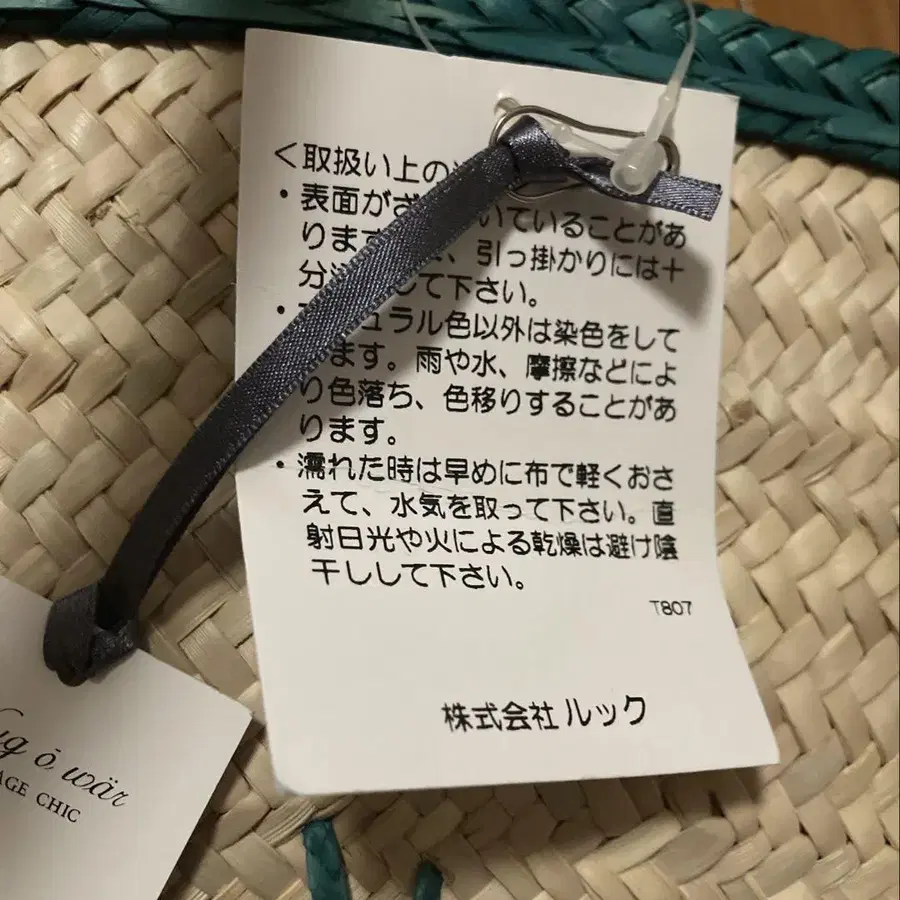 ＜取扱い上の
・表面がざ いていることがあ
ります 、引っ掛かりには十
分 して下さい。
・ ュラル色以外は染色をして
ます。雨や水、摩擦などによ
り色落ち、色移りすることがあ
ります。
・濡れた時は早めに布で軽くおさ
えて、水気を取って下さい。直
射日光や火による乾燥は避け陰
干しして下さい。
T807
株式会社 ルック
ug ō wär
AGE CHIC